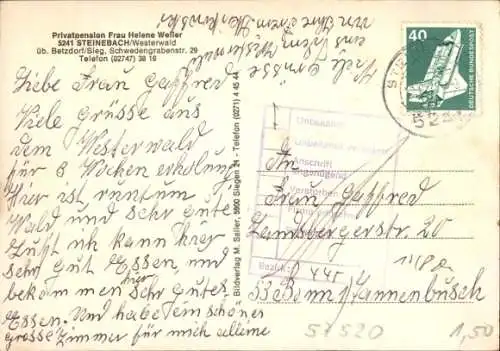 Privatpension Frau Helene Weller
5241 STEINEBACH/Westerwald
üb. Betzdorf/Sieg, Schwedengrabenstr. 29
Telefon (02747) 38 16
Liebe Frau Gaffred
Viele grüsse aus
dem Westerwald
für 6 Wochen erholung
Hier ist runtum
Wald und sehr gute
Luft ich kann hier
sehr gut Essen, und
bekommen hier sehr gutes
Essen. Und habe ein schönes
grosse Zimmer für mich alleine
Viele Grüsse
aus dem Westerwald
von Ihre
Bildverlag M. Seiler, 5900 Siegen 21 · Telefon (0271) 4 45 44
40
DEUTSCHE BUNDESPOST
524
Unbekannt
Anschrift
ungenügend
Verstorben
An
Frau Gaffred
Landsbergerstr. 20
53 Bonn Tannenbusch
57520
1,50